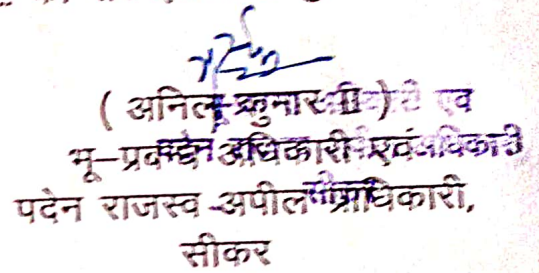 ( अनिल कुमार II )
भू-प्रबन्ध अधिकारी एवं
पदेन राजस्व अपील प्राधिकारी,
सीकर